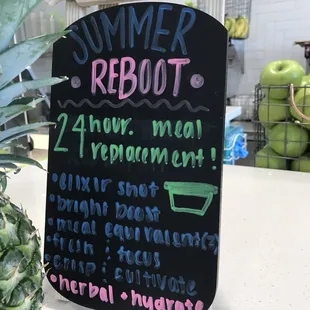 SUMMER
REBOOT
24 hour. meal
replacement!
• elixir shot
• bright boost
• meal equivalent(2)
• fresh + focus
• crisp + cultivate
• herbal + hydrate